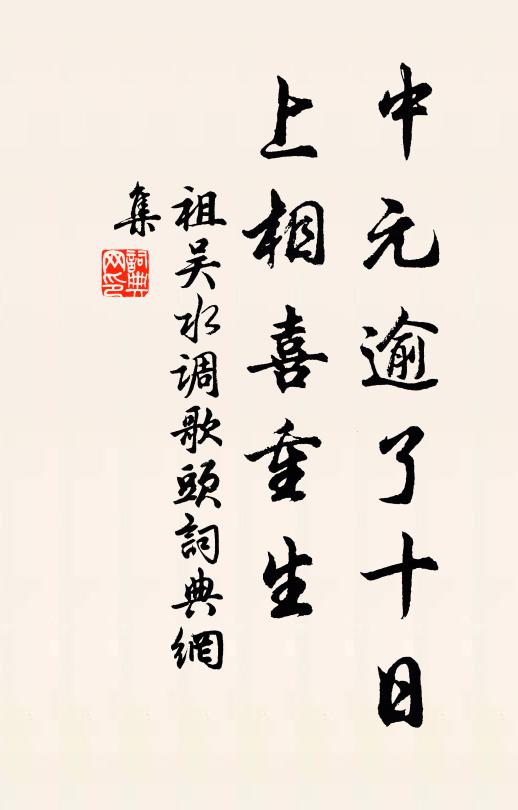 中元逾了十日
上相喜重生
祖吴水调歌頭詞典網
集
詞典网印